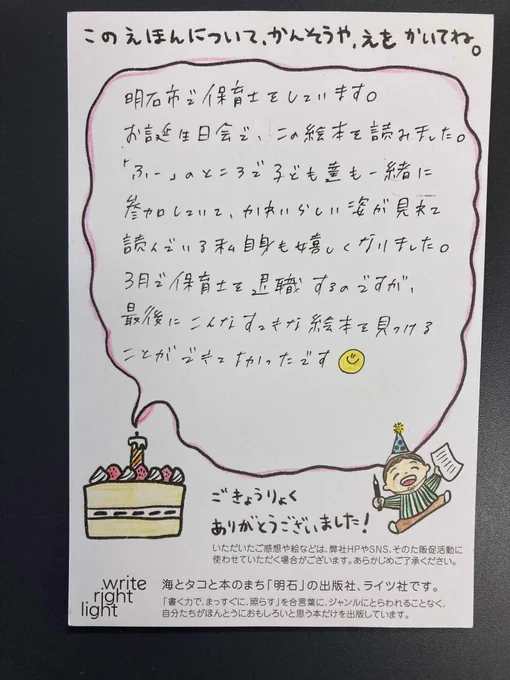 このえほんについて、かんそうや、えを かいてね。
明石市で保育士をしています。
お誕生日会で、この絵本を読みました。
「ふー」のところで子ども達も一緒に
参加していて、かわいらしい姿が見れて
読んでいる私自身も嬉しくなりました。
3月で保育士を退職するのですが、
最後にこんなすてきな絵本を見つける
ことができてよかったです
ごきょうりょく
ありがとうございました!
いただいたご感想や絵などは、弊社HPやSNS、そのた販促活動に
使わせていただく場合がございます。あらかじめご了承ください。
write
right
light
海とタコと本のまち「明石」の出版社、ライツ社です。
「書く力で、まっすぐに、照らす」を合言葉に、ジャンルにとらわれることなく、
自分たちがほんとうにおもしろいと思う本だけを出版しています。